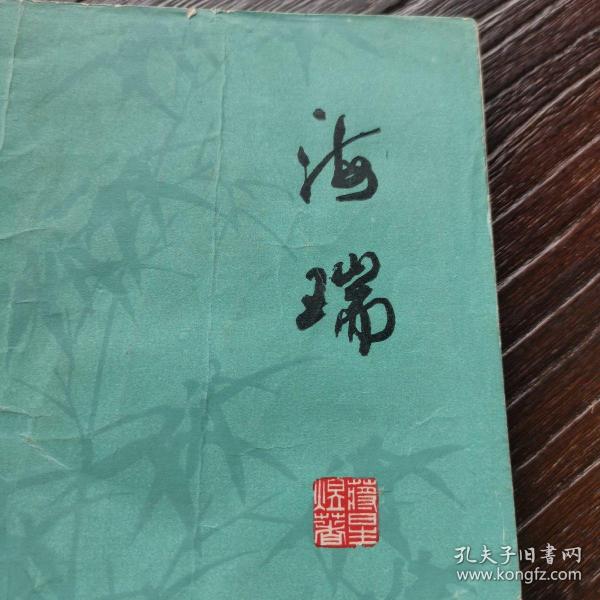 海瑞
蒋星煜著
孔夫子旧书网
www.kongfz.com